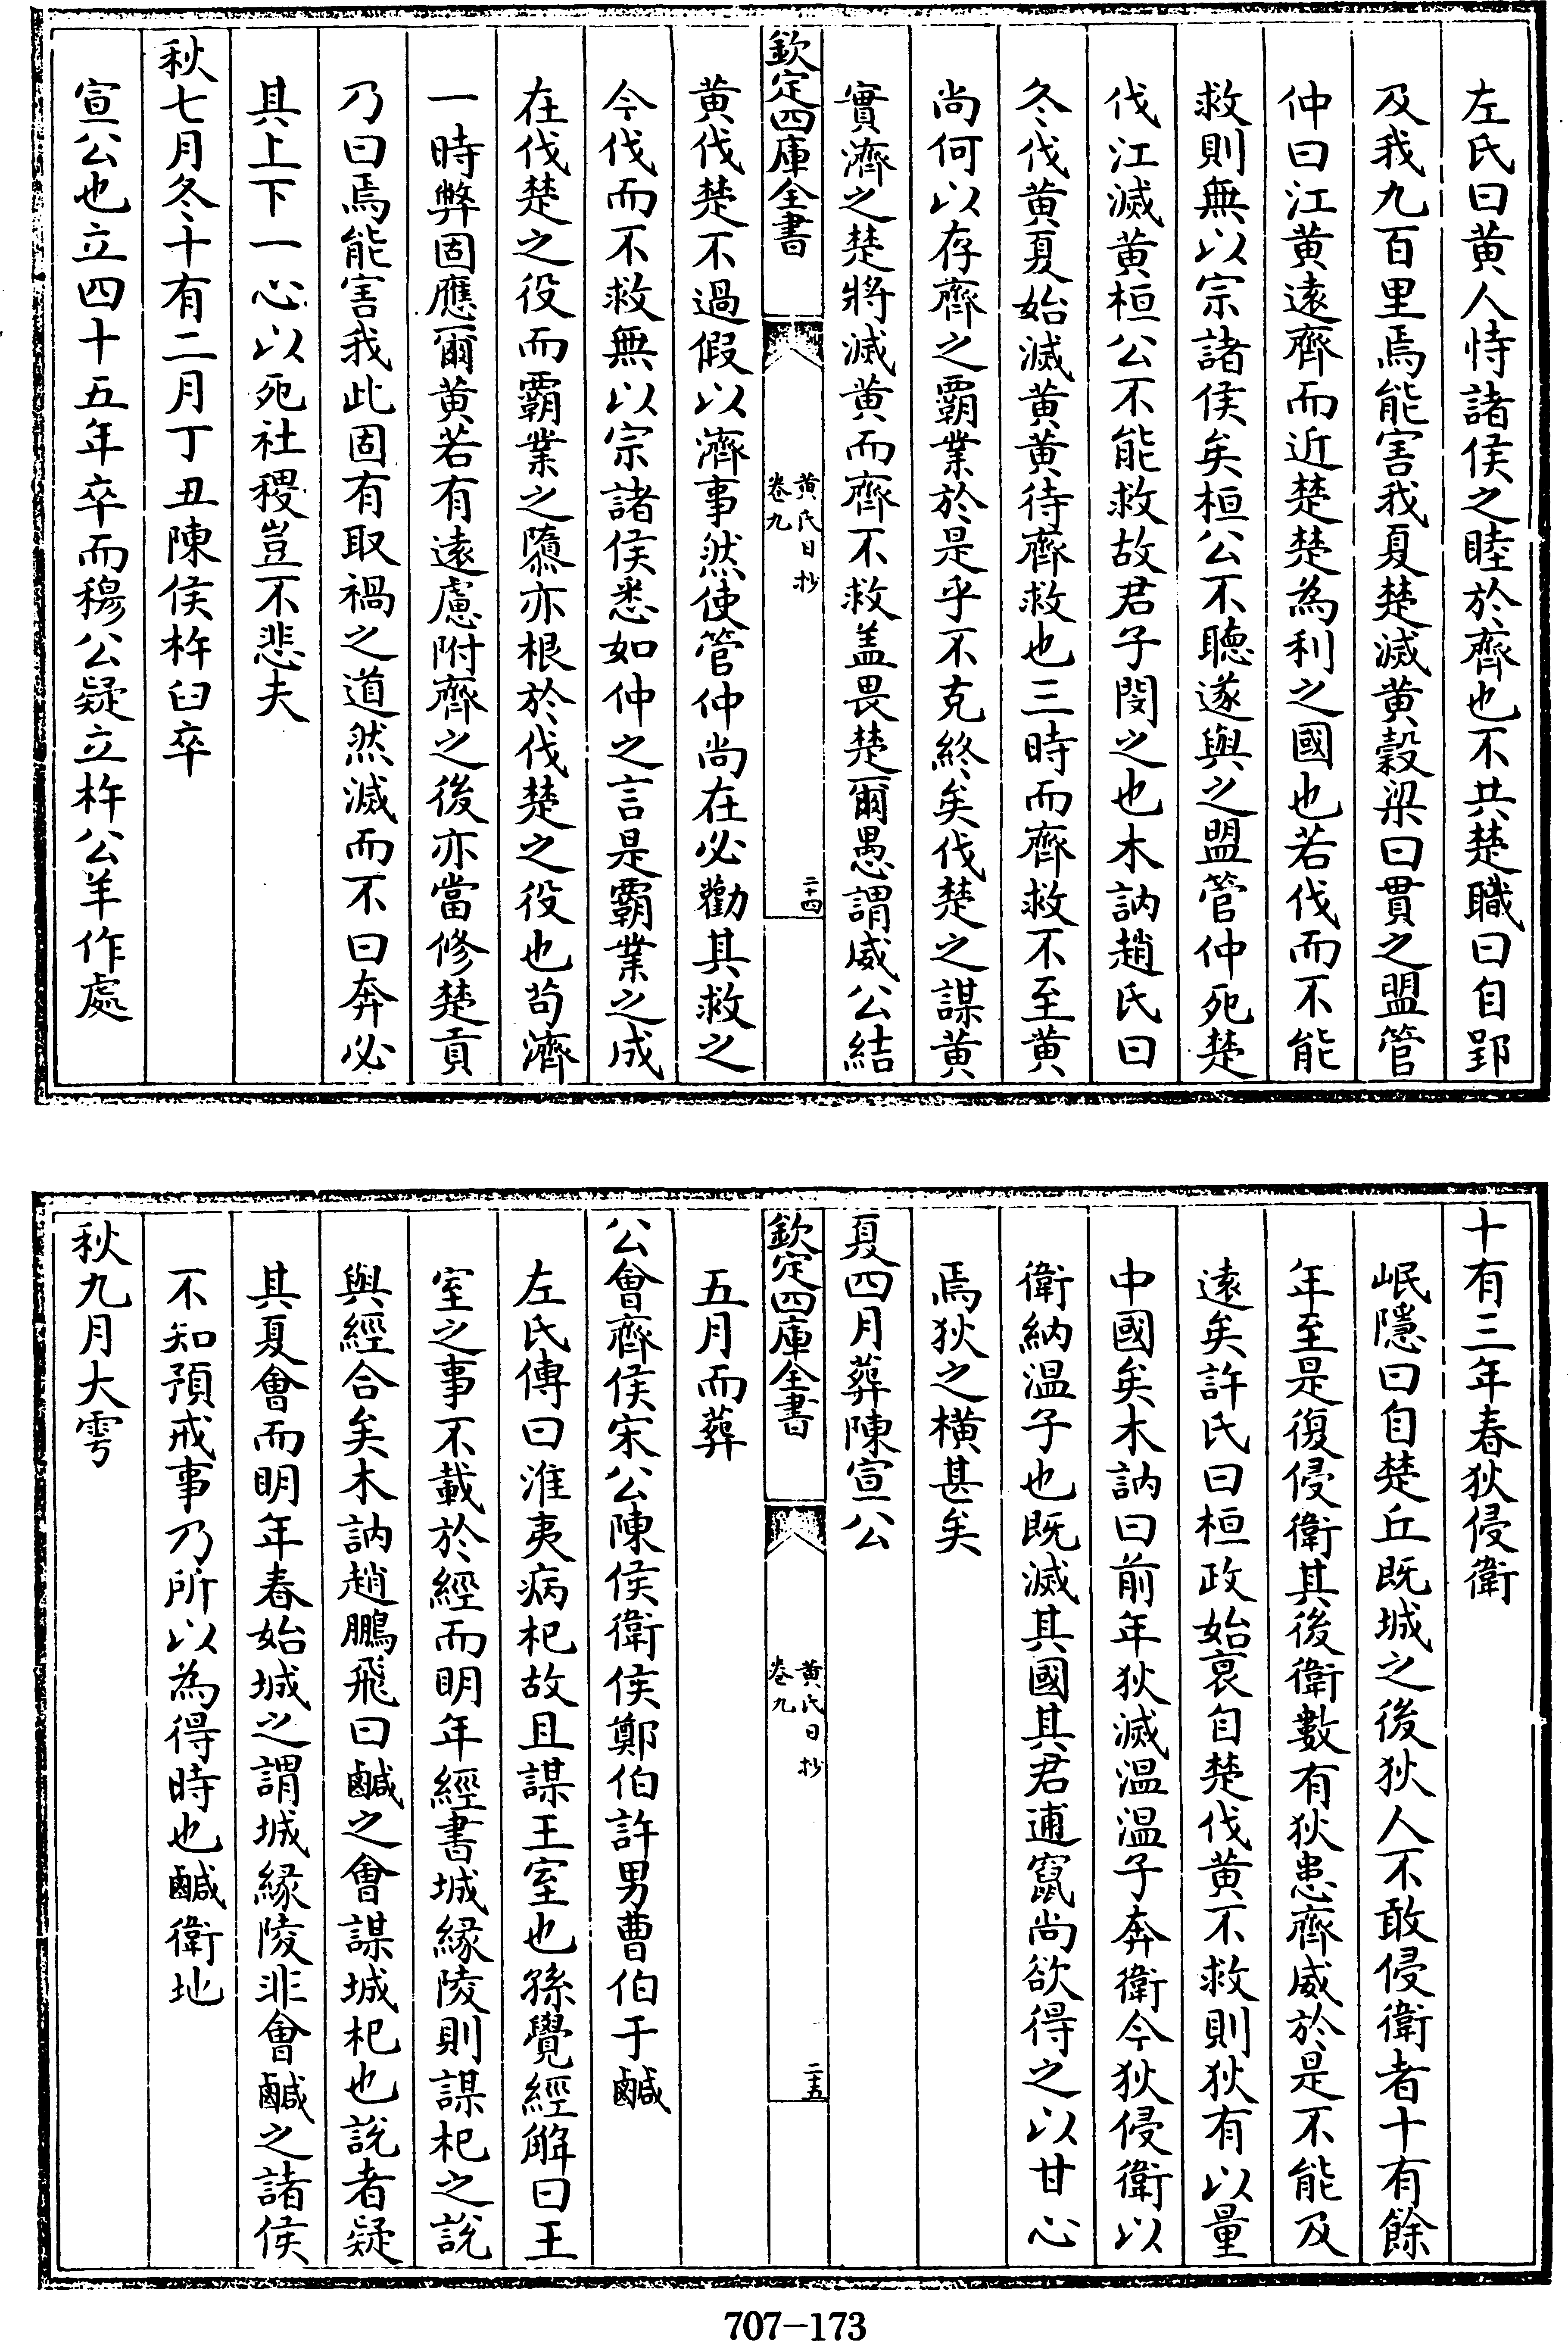 左氏曰黄人恃諸侯之睦於齊也不共楚職曰自郢
及我九百里焉能害我夏楚滅黄穀梁曰貫之盟管
仲曰江黄遠齊而近楚楚為利之國也若伐而不能
救則無以宗諸侯矣桓公不聽遂與之盟管仲死楚
伐江滅黄桓公不能救故君子閔之也木訥趙氏曰
冬伐黄夏始滅黄黄待齊救也三時而齊救不至黄
尚何以存齊之霸業於是乎不克終矣伐楚之謀黄
實濟之楚將滅黄而齊不救盖畏楚爾愚謂威公結
欽定四庫全書
黄氏日抄
卷九
二十四
黄伐楚不過假以濟事然使管仲尚在必勸其救之
今伐而不救無以宗諸侯悉如仲之言是霸業之成
在伐楚之役而霸業之隳亦根於伐楚之役也苟濟
一時弊固應爾黄若有遠慮附齊之後亦當修楚貢
乃曰焉能害我此固有取禍之道然滅而不曰奔必
其上下一心以死社稷豈不悲夫
秋七月冬十有二月丁丑陳侯杵臼卒
宣公也立四十五年卒而穆公疑立杵公羊作處
十有三年春狄侵衛
岷隱曰自楚丘既城之後狄人不敢侵衛者十有餘
年至是復侵衛其後衛數有狄患齊威於是不能及
遠矣許氏曰桓政始衰自楚伐黄不救則狄有以量
中國矣木訥曰前年狄滅温温子奔衛今狄侵衛以
衛納温子也既滅其國其君逋竄尚欲得之以甘心
焉狄之横甚矣
夏四月葬陳宣公
欽定四庫全書
黄氏日抄
卷九
二十五
五月而葬
公會齊侯宋公陳侯衛侯鄭伯許男曹伯于鹹
左氏傳曰淮夷病杞故且謀王室也孫覺經解曰王
室之事不載於經而明年經書城緣陵則謀杞之說
與經合矣木訥趙鵬飛曰鹹之會謀城杞也說者疑
其夏會而明年春始城之謂城緣陵非會鹹之諸侯
不知預戒事乃所以為得時也鹹衛地
秋九月大雩
707-173